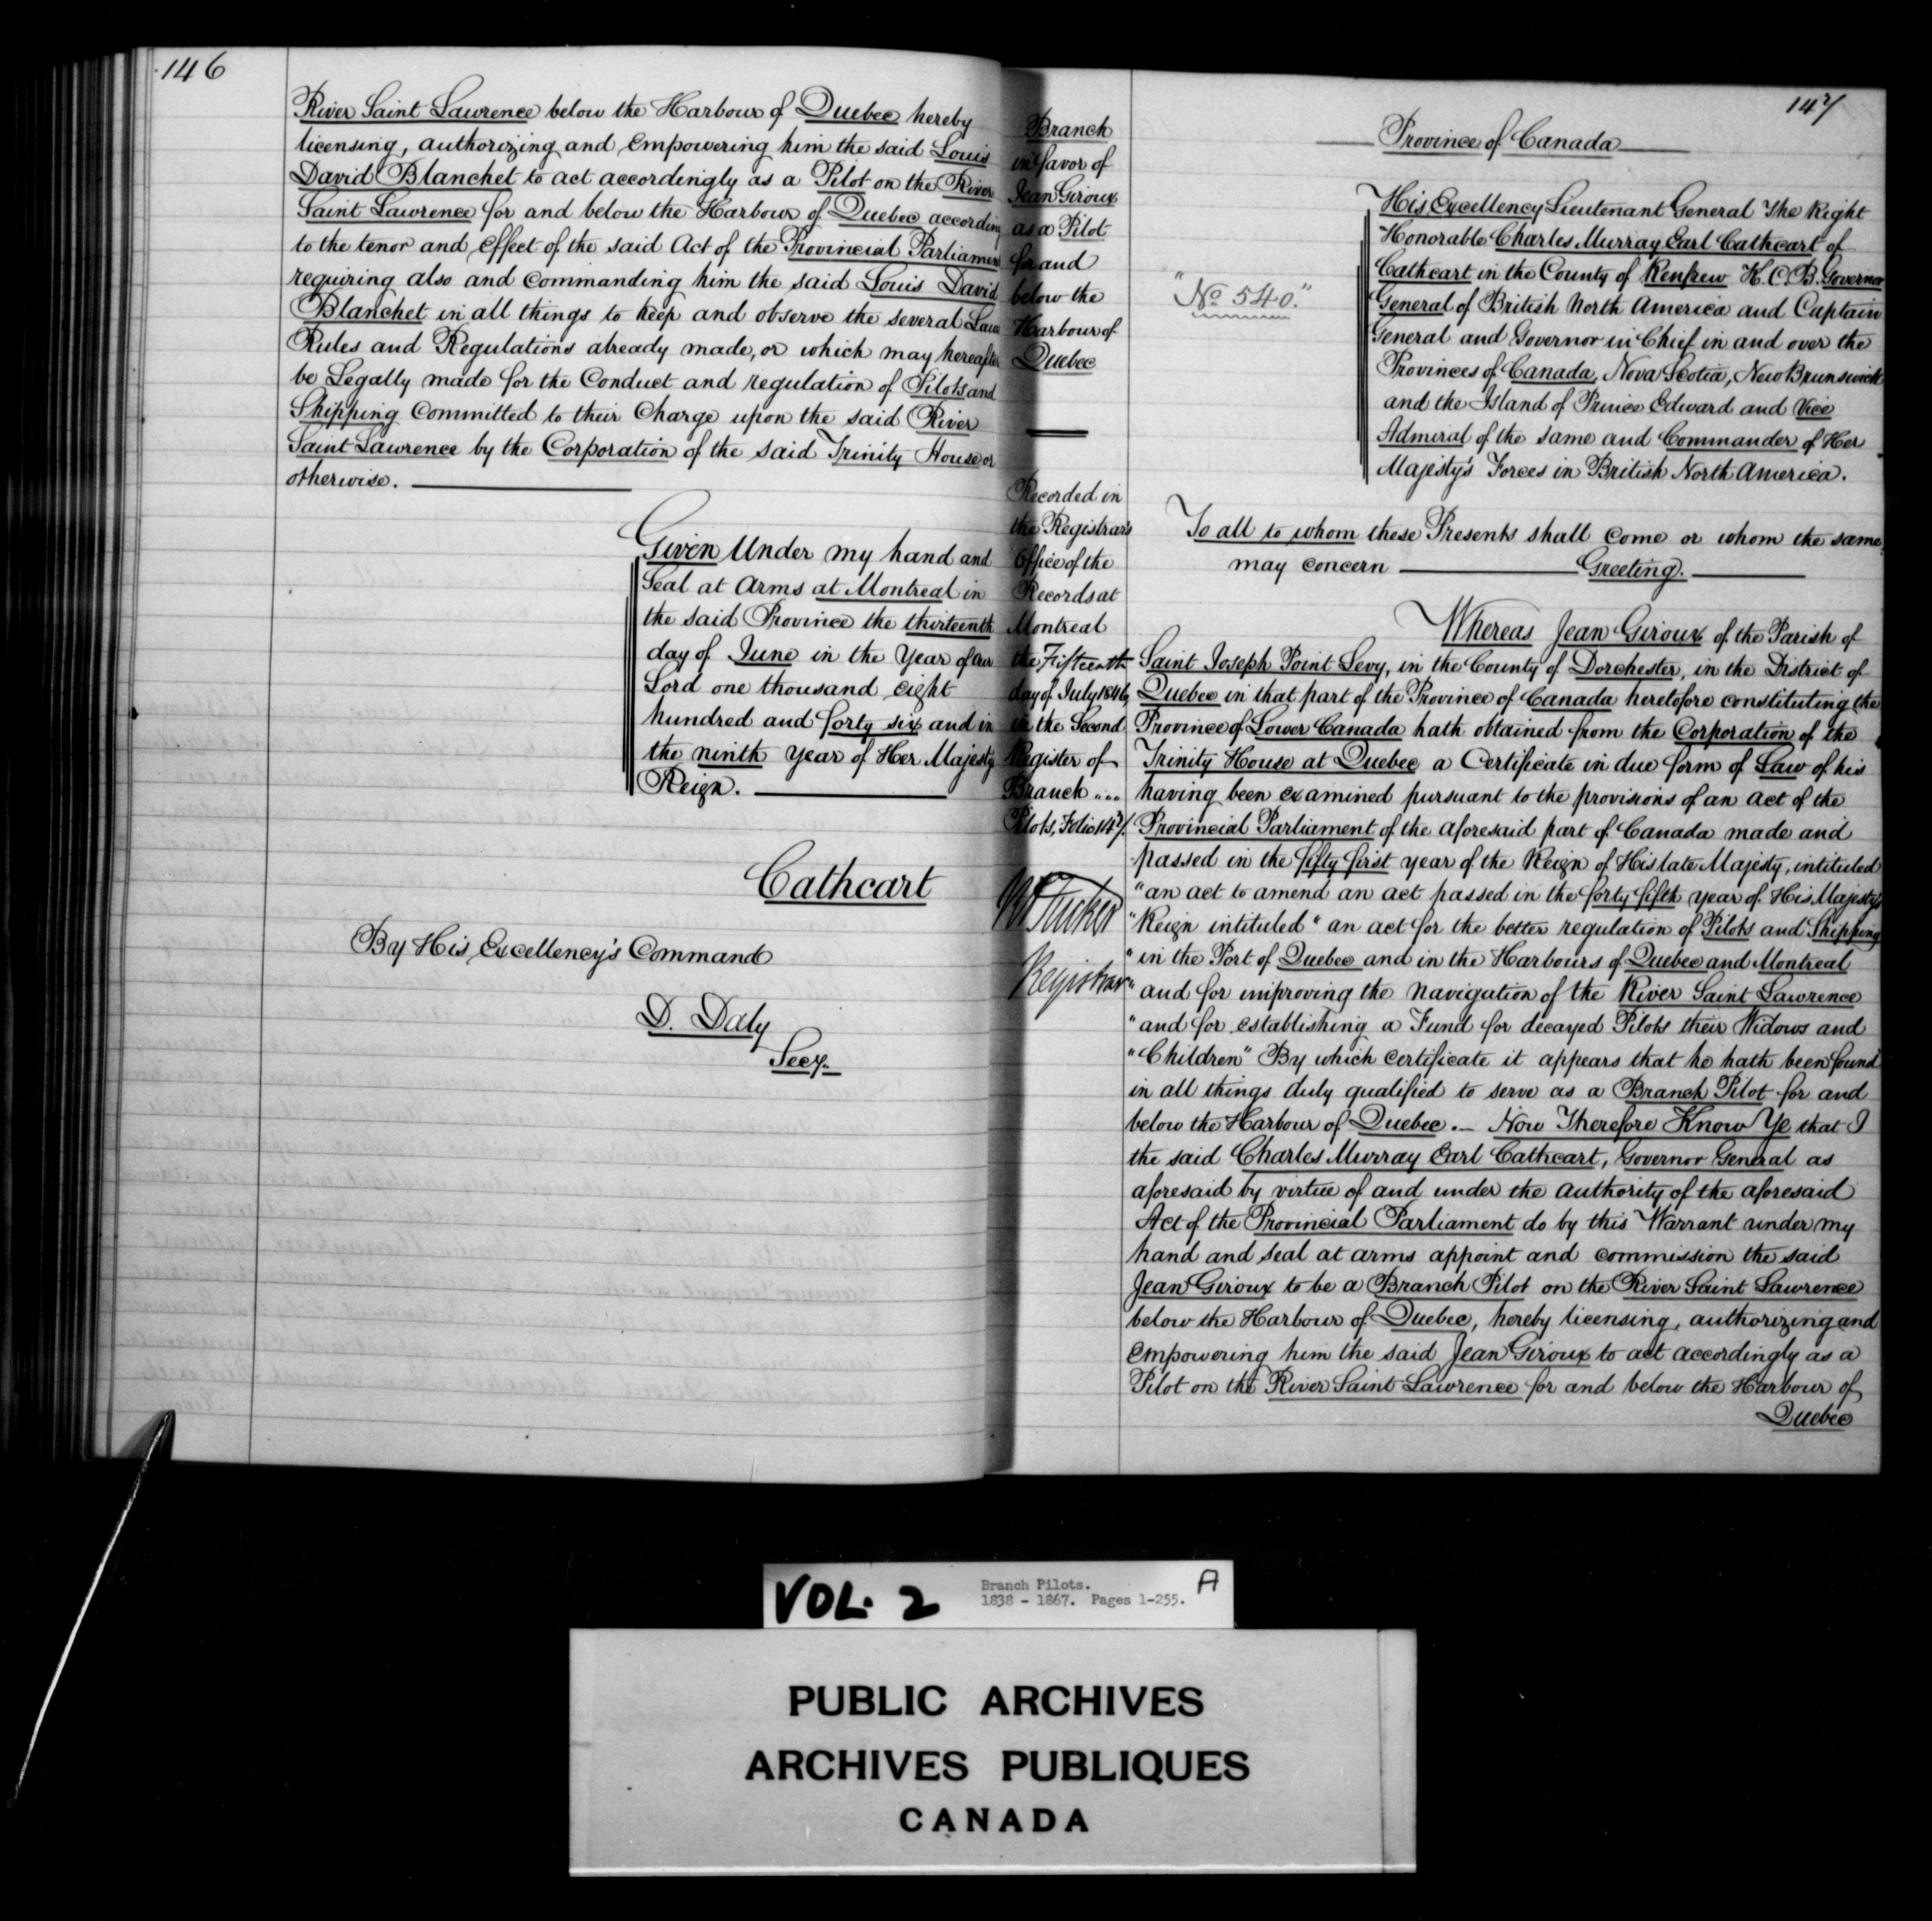 146
River Saint Lawrence below the Harbour of Quebec hereby
licensing, authorizing and empowering him the said Louis
David Blanchet to act accordingly as a Pilot on the River
Saint Lawrence for and below the Harbour of Quebec according
to the tenor and effect of the said Act of the Provincial Parliament
requiring also and commanding him the said Louis David
Blanchet in all things to keep and observe the several Laws
Rules and Regulations already made, or which may hereafter
be Legally made for the Conduct and regulation of Pilots and
Shipping Committed to their Charge upon the said River
Saint Lawrence by the Corporation of the said Trinity House or
otherwise.
Given Under my hand and
Seal at Arms at Montreal in
the said Province the thirteenth
day of June in the Year of our
Lord one thousand eight
hundred and forty six and in
the ninth year of Her Majesty
Reign.
Cathcart
By His Excellency's Command
D. Daly
Secy.
147
Branch
in favor of
Jean Giroux
as a Pilot
for and
below the
Harbour of
Quebec
Recorded in
the Registrar's
Office of the
Records at
Montreal
the Fifteenth
day of July 1846,
in the Second
Register of
Branch ....
Pilots, Folio 147.
Tucker
Registrar
Province of Canada
"No 540."
His Excellency Lieutenant General The Right
Honorable Charles Murray Earl Cathcart of
Cathcart in the County of Renfrew K.C.B. Governor
General of British North America and Captain
General and Governor in Chief in and over the
Provinces of Canada, Nova Scotia, New Brunswick
and the Island of Prince Edward and Vice
Admiral of the same and Commander of Her
Majesty's Forces in British North America.
To all to whom these Presents shall come or whom the same
may concern Greeting.
Whereas Jean Giroux of the Parish of
Saint Joseph Point Levy, in the County of Dorchester, in the District of
Quebec in that part of the Province of Canada heretofore constituting the
Province of Lower Canada hath obtained from the Corporation of the
Trinity House at Quebec a Certificate in due form of Law of his
having been examined pursuant to the provisions of an act of the
Provincial Parliament of the aforesaid part of Canada made and
passed in the fifty first year of the Reign of His late Majesty, intituled
"an act to amend an act passed in the forty fifth year of His Majesty's
"Reign intituled "an act for the better regulation of Pilots and Shipping
"in the Port of Quebec and in the Harbours of Quebec and Montreal
"and for improving the navigation of the River Saint Lawrence
"and for establishing a Fund for decayed Pilots their Widows and
"Children" By which certificate it appears that he hath been found
in all things duly qualified to serve as a Branch Pilot for and
below the Harbour of Quebec. — Now Therefore Know Ye that I
the said Charles Murray Earl Cathcart, Governor General as
aforesaid by virtue of and under the authority of the aforesaid
Act of the Provincial Parliament do by this Warrant under my
hand and seal at arms appoint and commission the said
Jean Giroux to be a Branch Pilot on the River Saint Lawrence
below the Harbour of Quebec, hereby licensing, authorizing and
empowering him the said Jean Giroux to act accordingly as a
Pilot on the River Saint Lawrence for and below the Harbour of
Quebec
VOL. 2
Branch Pilots.
1838 - 1867. Pages 1-255.
A
PUBLIC ARCHIVES
ARCHIVES PUBLIQUES
CANADA